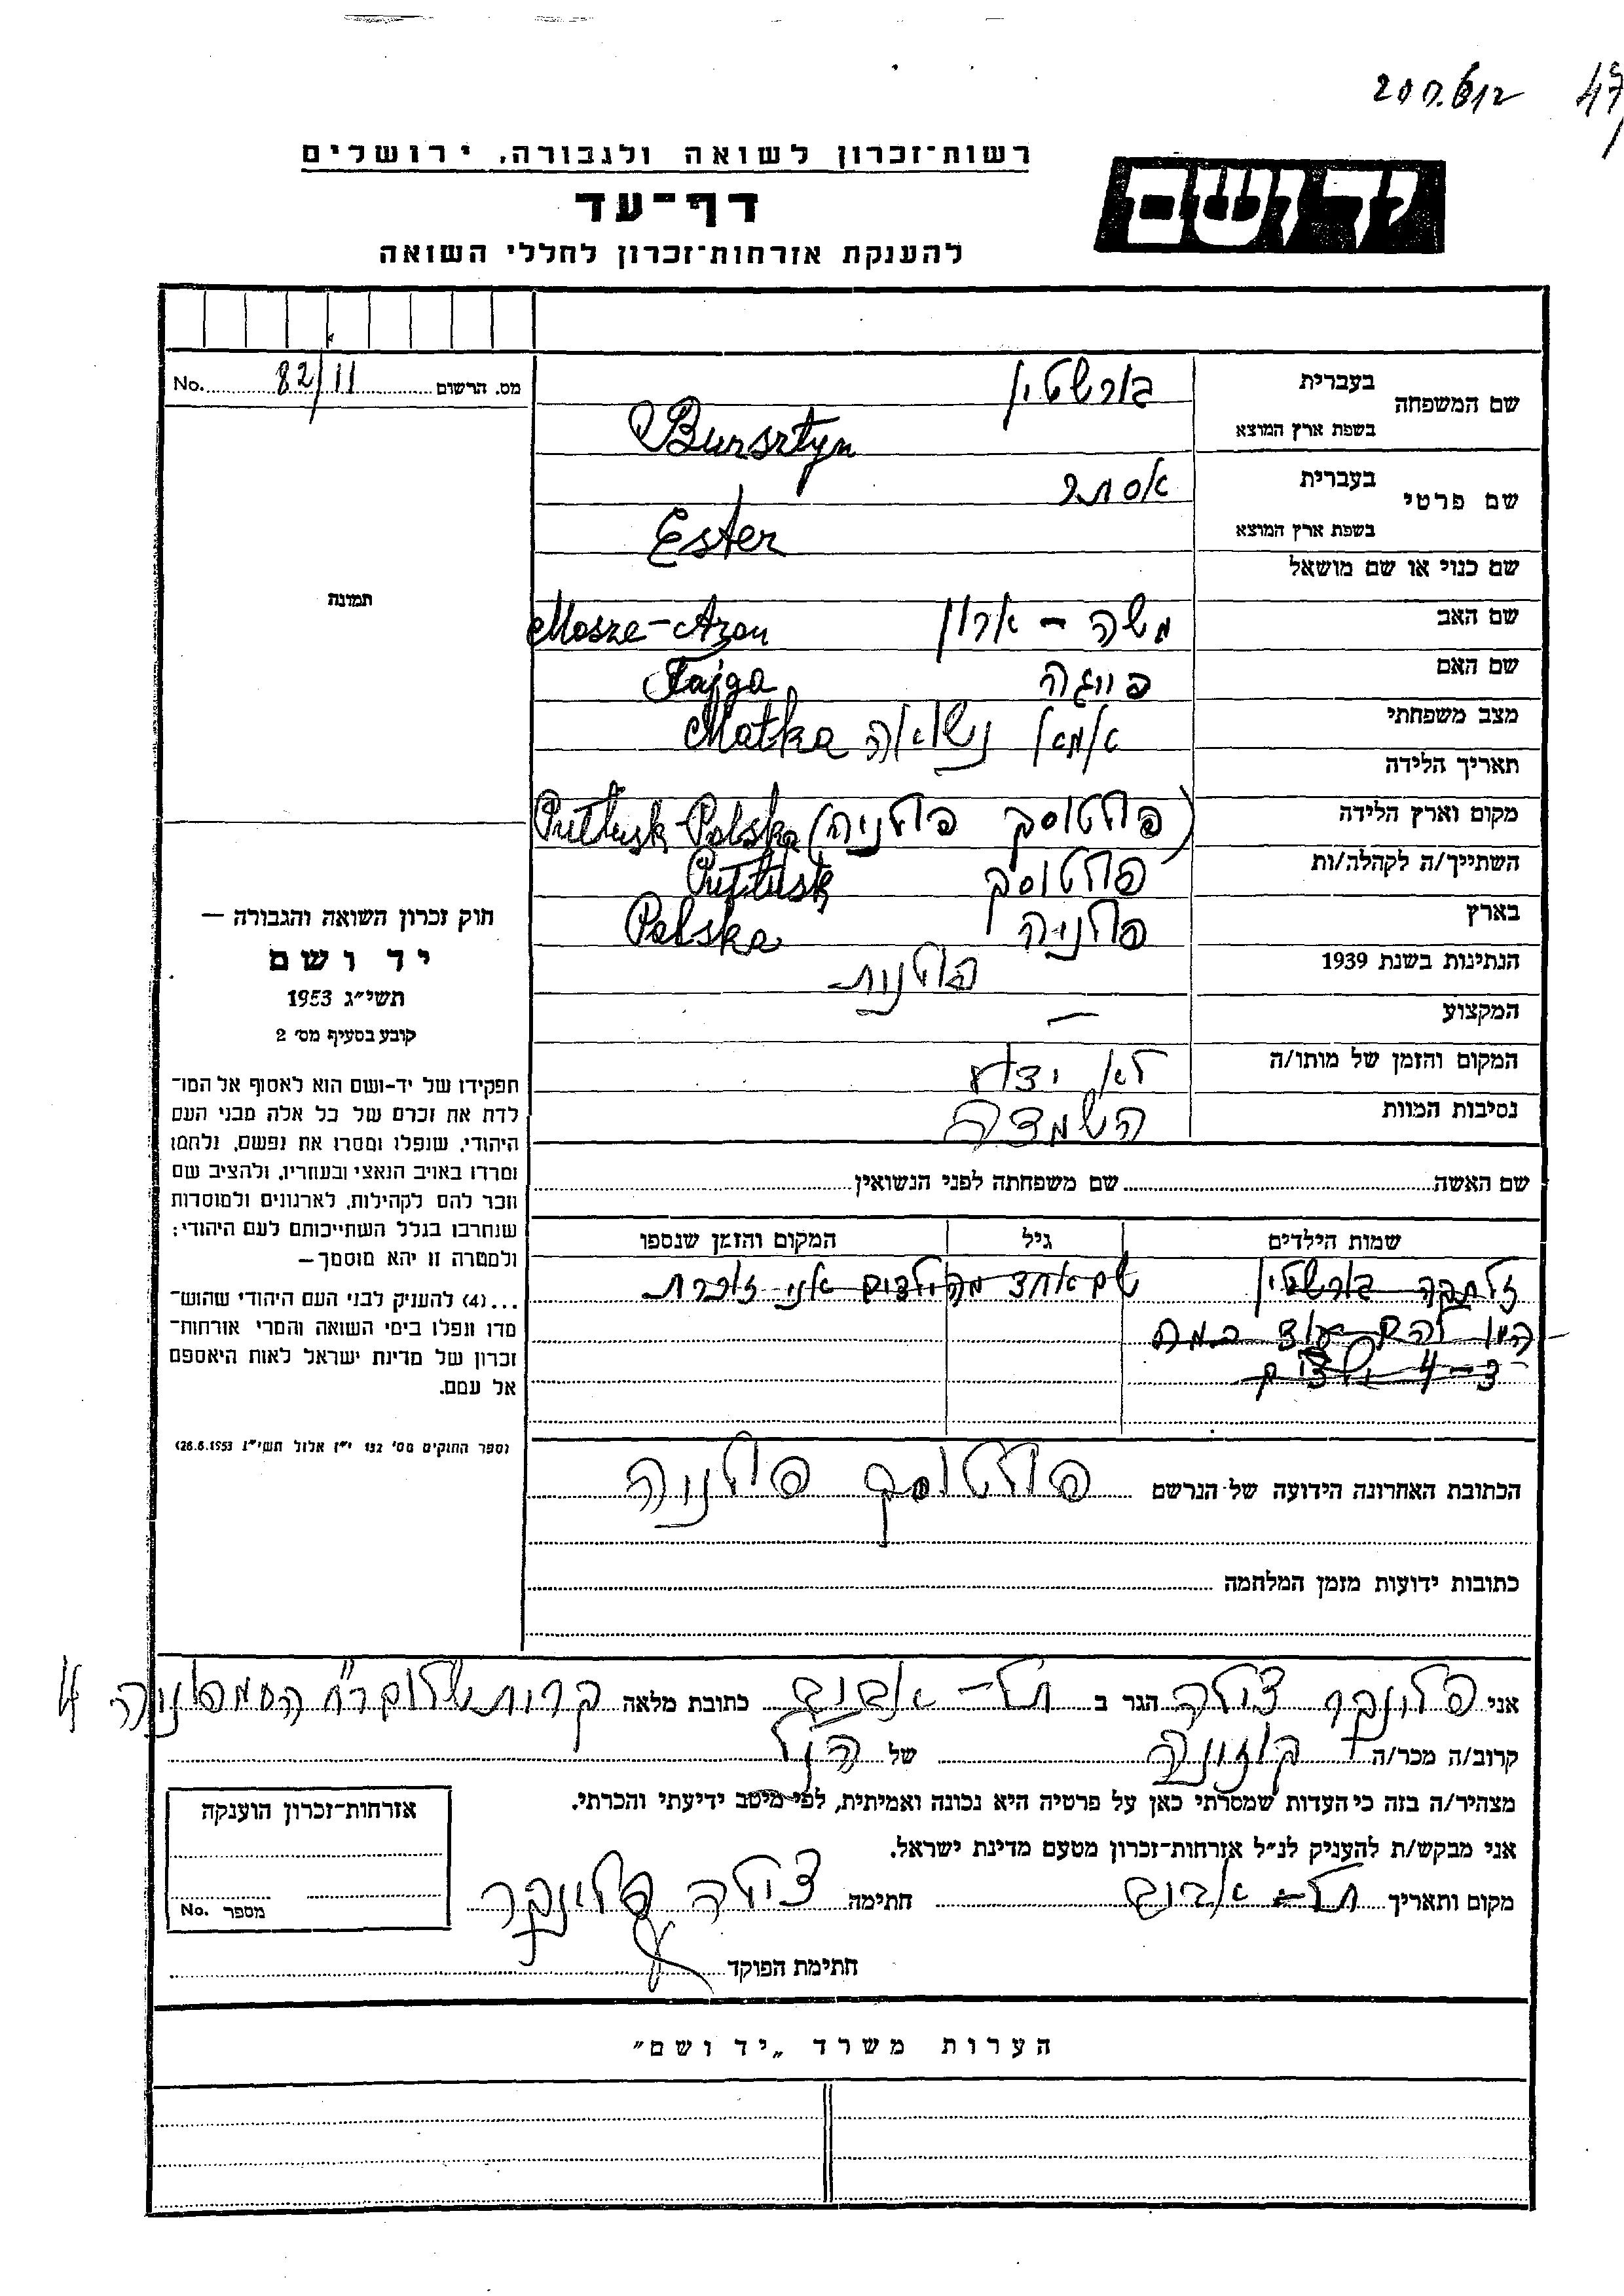 47
רשות-זכרון לשואה ולגבורה, ירושלים
דף-עד
להענקת אזרחות-זכרון לחללי השואה
יד ושם
מס. הרשום 82/11 No.
שם המשפחה
בעברית בורשטין
בשפת ארץ המוצא Bursztyn
שם פרטי
בעברית אסתר
בשפת ארץ המוצא Ester
שם כנוי או שם מושאל
שם האב משה - ארון Mosze-Aron
שם האם פייגה Fajga
מצב משפחתי אמא נשואה Matka
תאריך הלידה
מקום וארץ הלידה (פולטוסק פולניה) Pułtusk-Polska
השתייך/ה לקהלה/ות פולטוסק Pułtusk
בארץ פולניה Polska
הנתינות בשנת 1939 פולנית
המקצוע —
המקום והזמן של מותו/ה לא ידוע
נסיבות המוות השמדה
שם האשה שם משפחתה לפני הנשואין
שמות הילדים גיל המקום והזמן שנספו
זלתקה בורשטין שם אחד מהילדים אני זוכרת
היו להם עוד כמה
3-4 ילדים
הכתובת האחרונה הידועה של הנרשם פולטוסק פולניה
כתובות ידועות מזמן המלחמה
תמונה
חוק זכרון השואה והגבורה —
יד ושם
תשי״ג 1953
קובע בסעיף מס׳ 2
תפקידו של יד-ושם הוא לאסוף אל המו־
לדת את זכרם של כל אלה מבני העם
היהודי, שנפלו ומסרו את נפשם, נלחמו
ומרדו באויב הנאצי ובעוזריו, ולהציב שם
וזכר להם לקהילות, לארגונים ולמוסדות
שנחרבו בגלל השתייכותם לעם היהודי;
ולמטרה זו יהא מוסמך—
...(4) להעניק לבני העם היהודי שהוש־
מדו ונפלו בימי השואה והמרי אזרחות־
זכרון של מדינת ישראל לאות היאספם
אל עמם.
(ספר החוקים מס׳ 132 י״ז אלול תשי״ג 28.8.1953)
אני פלונקר צילה הגר ב תל-אביב כתובת מלאה קרית שלום רח' 4
קרוב/ה מכר/ה קוזינה של הנ"ל
מצהיר/ה בזה כי העדות שמסרתי כאן על פרטיה היא נכונה ואמיתית, לפי מיטב ידיעתי והכרתי.
אני מבקש/ת להעניק לנ״ל אזרחות-זכרון מטעם מדינת ישראל.
מקום ותאריך תל-אביב חתימה צילה פלונקר
חתימת הפוקד
אזרחות-זכרון הוענקה
מספר No.
הערות משרד „יד ושם״